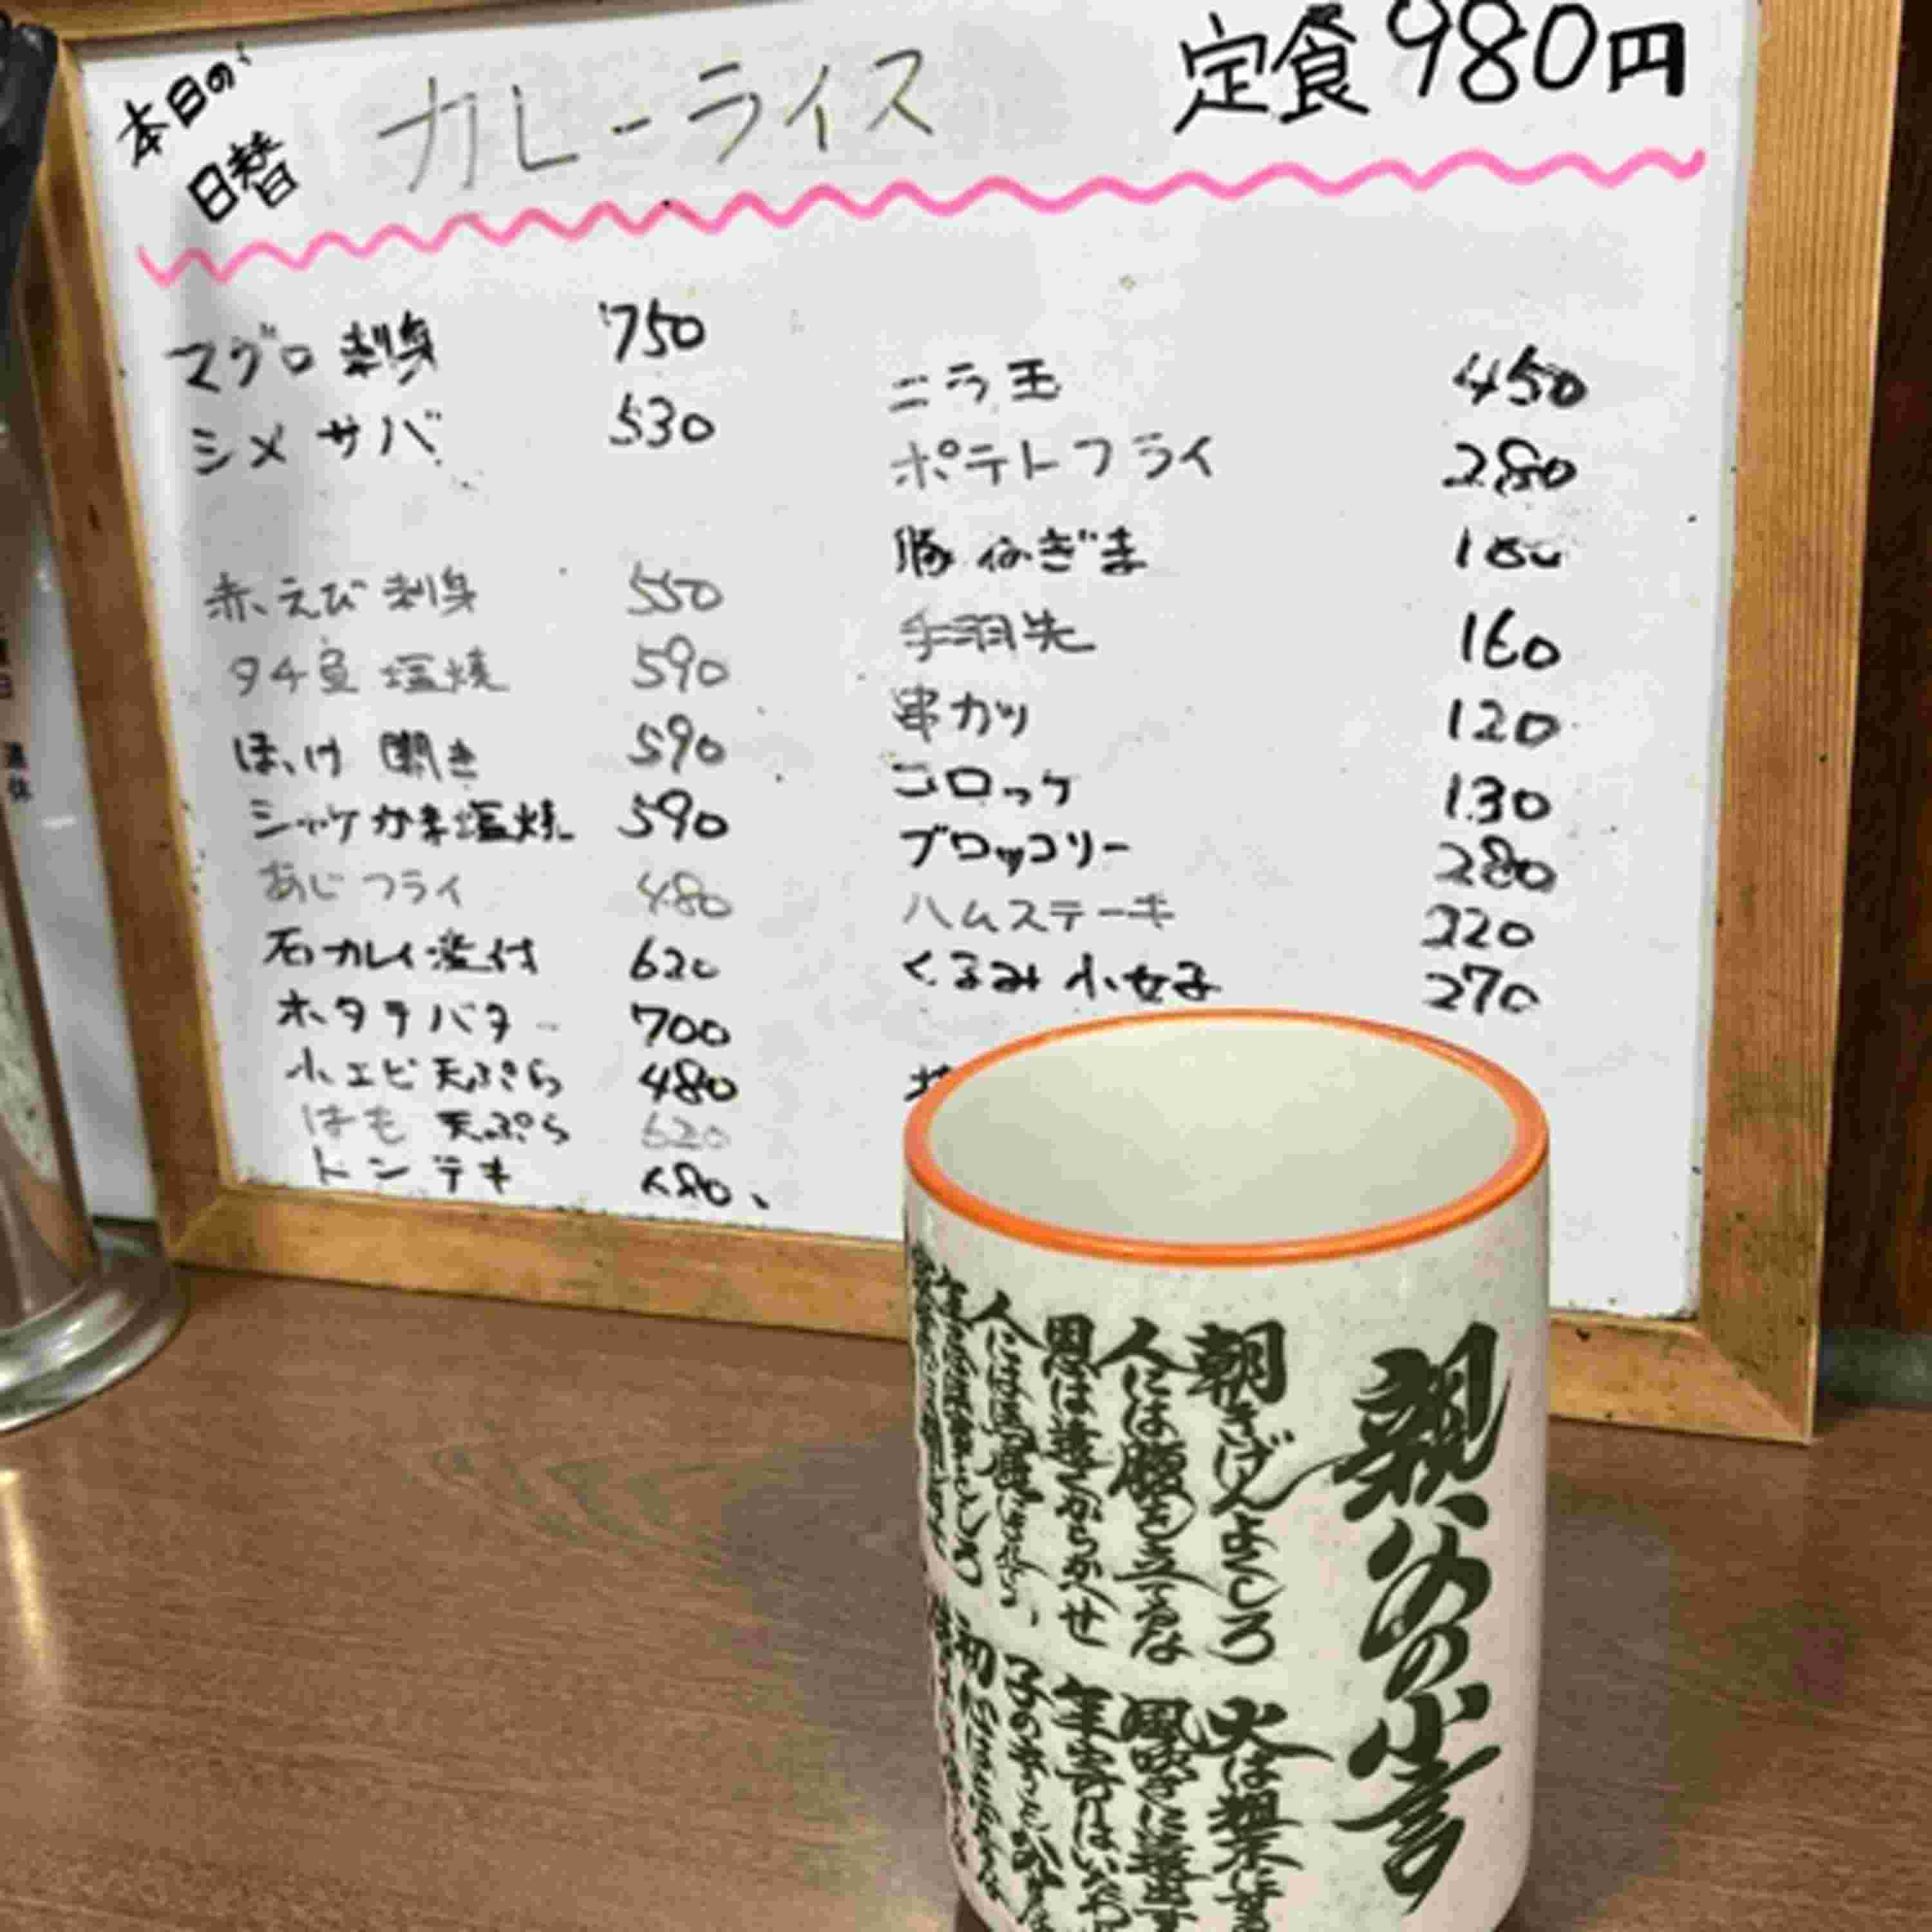 本日の
日替
カレーライス
定食 980円
マグロ 刺身 750
シメサバ 530
赤えび 刺身 550
タチ魚 塩焼 590
ほっけ 開き 590
シャケかま塩焼 590
あじフライ 480
石カレイ煮付 620
ホタテバター 700
小エビ天ぷら 480
はも 天ぷら 620
トンテキ 680
ニラ玉 450
ポテトフライ 280
豚ねぎま
手羽先 160
串カツ 120
コロッケ 130
ブロッコリー 280
ハムステーキ 320
くるみ 小女子 270
親父の小言
朝きげんよくしろ
人には腹を立てるな
恩は遠くからかくせ
火は粗末にする
風吹きに遠出す
年寄りはいたわ